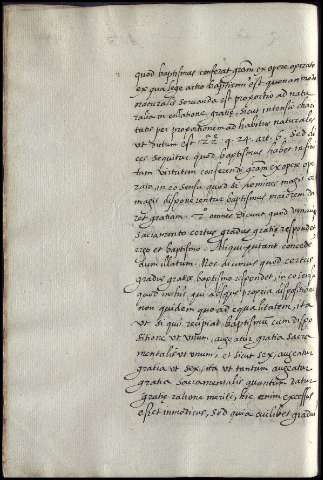 quod baptismus conferat gram ex opere operato
ex qua lege actio baptismi est quonam modo
naturalis servanda est proportio ad natu
ralia in collatione gratiæ, sicut intensio chari
tatis per proportionem ad habitus naturales
ut dictum est 22æ q. 24. art. 6. Sed di
ces sequitur quod baptismus habet infini
tam virtutem conferendi gram ex opere ope
rato, in eo sensu quod si homines magis et
magis disponerentur baptismus maiorem da
ret gratiam. 2º omnes dicunt quod unicuique
sacramento certus gradus gratiæ respondet
ergo et baptismo. Aliqui putant conceden
dum illatum. Nos dicimus quod certus
gradus gratiæ baptismo respondet, in eo sensu
quod nihil qui absque propria dispositione
non quidem quoad equalitatem, ita
ut si qui recipiat baptismum cum dispo
sitione ut unum, augeatur gratia sacra
mentalis ut unum, et sicut sex, augeatur
gratia ut sex, ita ut tantum augeatur
gratia sacramentalis quantum datur
gratiæ ratione meriti, hic enim excessus
esset immodicus, sed quia cuilibet gradui